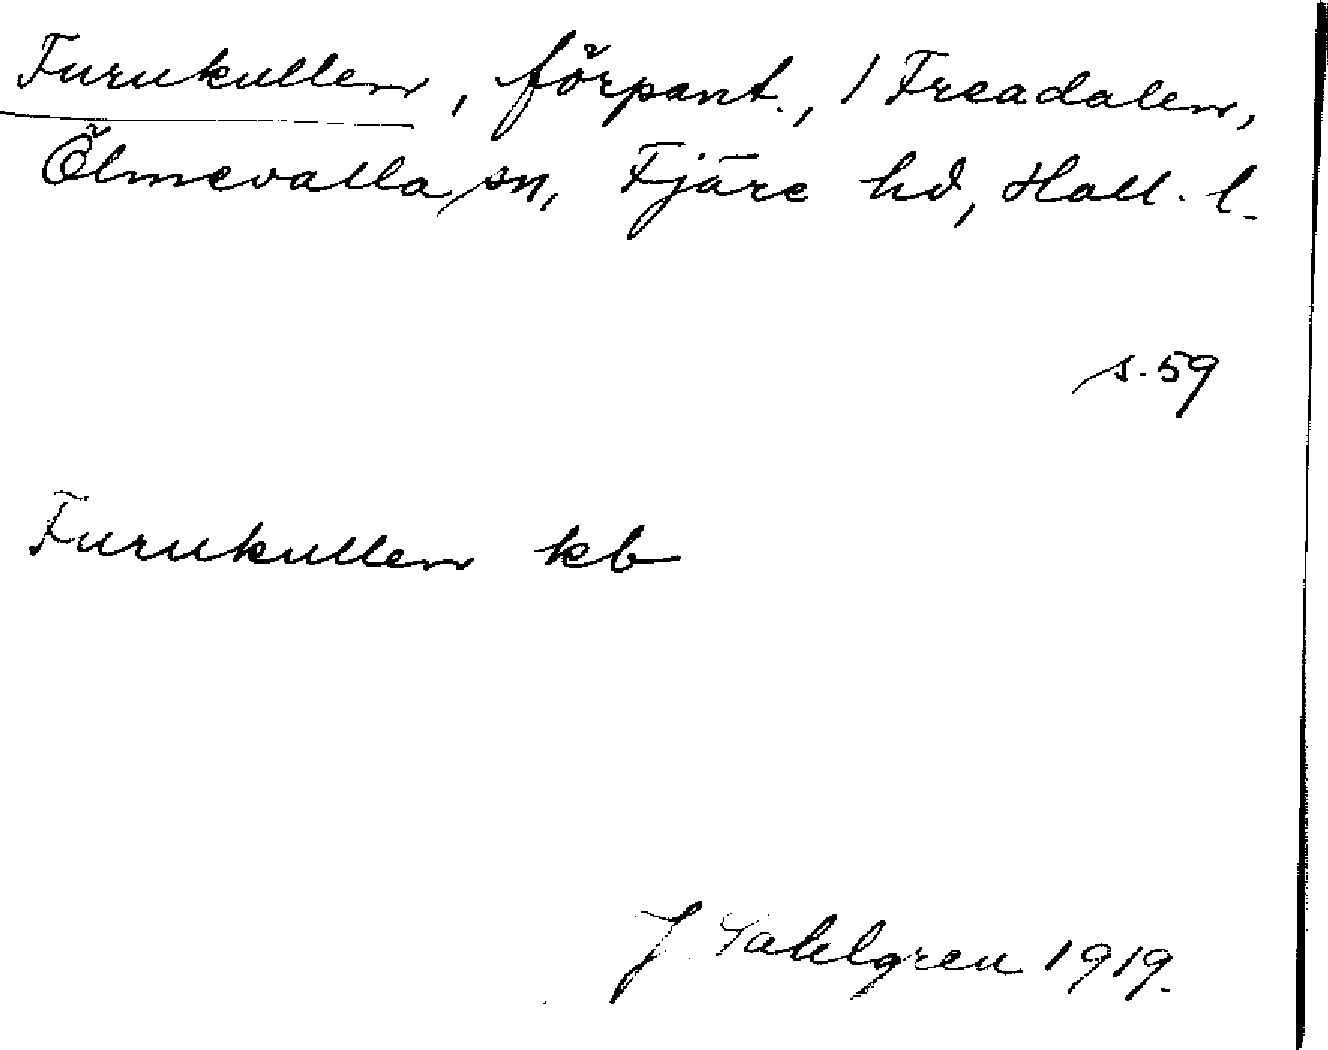 Furukullen, förpant., 1 Freadalen,
Ölmevalla sn, Fjäre hd, Hall. l.
s. 59
Furukullen kb
J. Sahlgren 1919.